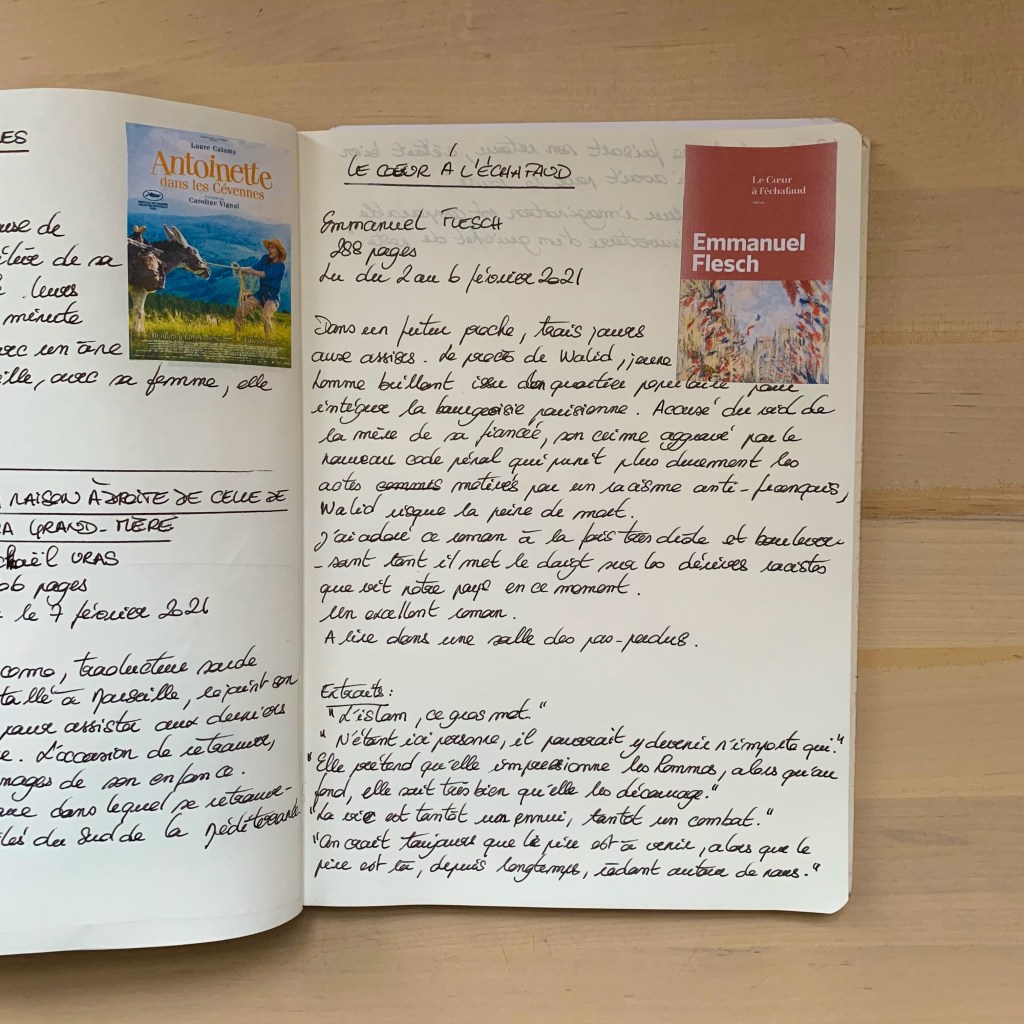 ES
use de
élève de sa
leurs
minute
ec un âne
eille, avec sa femme, elle
Laure Calamy
Antoinette
dans les Cévennes
Caroline Vignal
MAISON À DROITE DE CELLE DE
A GRAND-MÈRE
chaël URAS
06 pages
le 7 février 2021
como, traducteur sarde
tallé à Marseille, rejoint son
pour assister aux derniers
e. L'occasion de retrouver,
nages de son enfance.
dans lequel se retrouve-
tés du Sud de la Méditerranée.
LE COEUR A L'ÉCHAFAUD
Emmanuel FLESCH
288 pages
Lu du 2 au 6 février 2021
Le Cœur
à l'échafaud
Emmanuel
Flesch
Dans un futur proche, trois jours
aux assises. Le procès de Walid, jeune
homme brillant issu d'un quartier populaire pour
intégrer la bourgeoisie parisienne. Accusé du viol de
la mère de sa fiancée, son crime aggravé par le
nouveau code pénal qui punit plus durement les
actes commis motivés par un racisme anti-français,
Walid risque la peine de mort.
J'ai adoré ce roman à la fois très drôle et boulever
-sant tant il met le doigt sur les dérives racistes
que vit notre pays en ce moment.
Un excellent roman.
A lire dans une salle des pas-perdus.
Extraits :
"L'islam, ce gros mot."
"N'étant ici personne, il pourrait y devenir n'importe qui."
"Elle prétend qu'elle impressionne les hommes, alors qu'au
fond, elle sait très bien qu'elle les décourage."
"La vie est tantôt un ennui, tantôt un combat."
"On croit toujours que le pire est à venir, alors que le
pire est là, depuis longtemps, rôdant autour de nous."